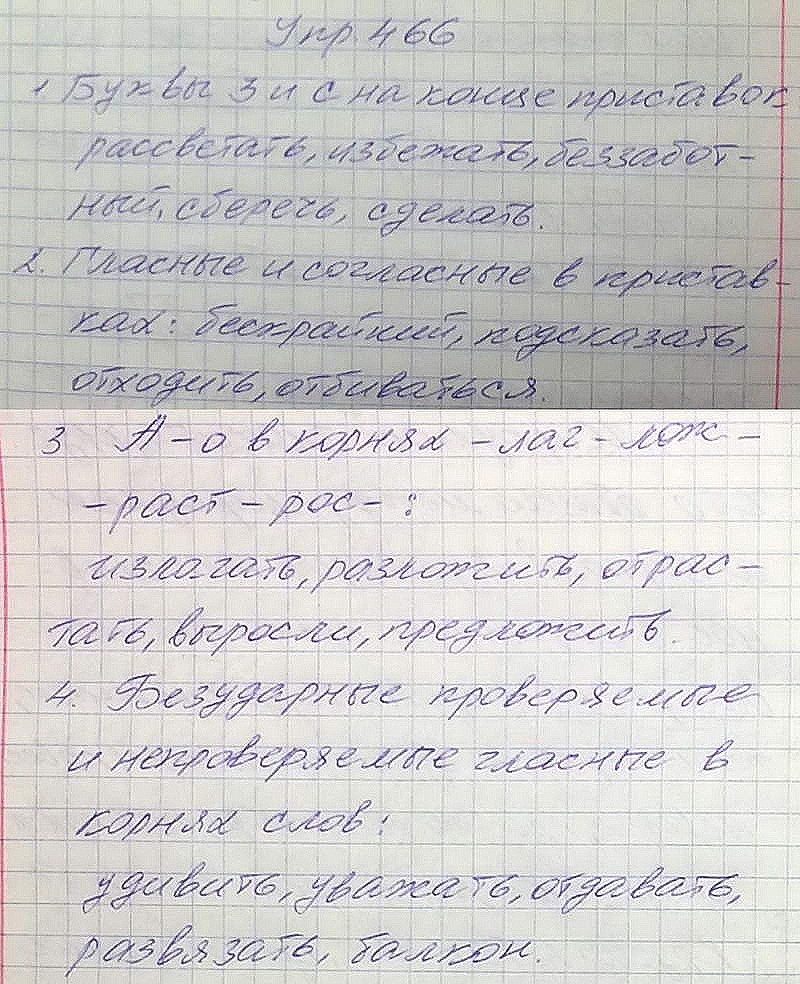 Упр. 466
1 Буквы З и С на конце приставок
рассветать, избежать, беззабот-
ный, сберечь, сделать.
2. Гласные и согласные в пристав-
ках: бескрайний, подсказать,
отходить, отбиваться.
3 А - о в корнях -лаг - лож -
- раст - рос - :
излагать, разложить, отрас-
тать, выросли, предложить.
4. Безударные проверяемые
и непроверяемые гласные в
корнях слов:
удивить, уважать, отдавать,
развязать, балкон.